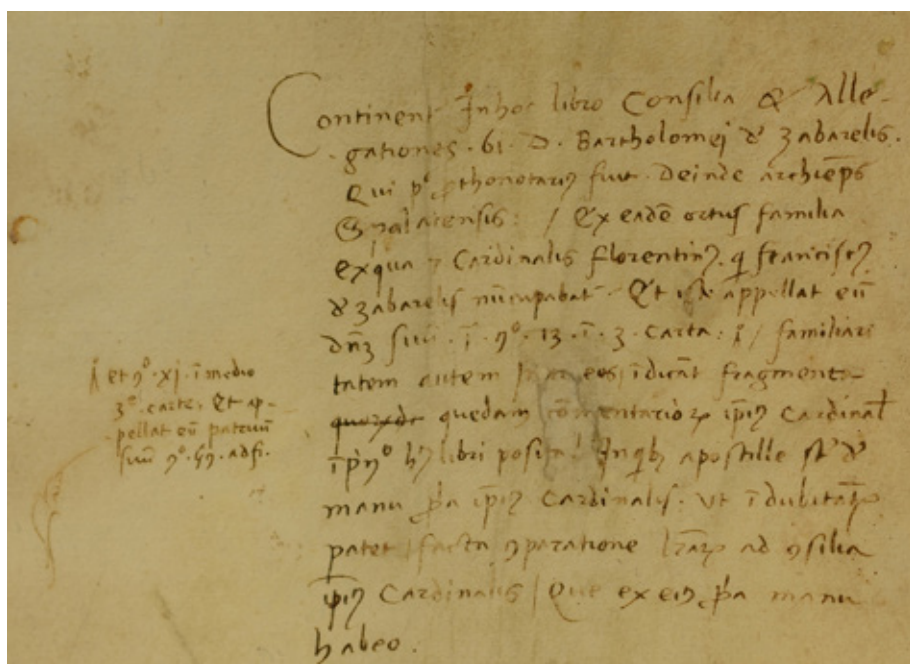 Continent Inhoc libro Consilia & Alle-
gationes . 61 . D . Bartholomei d' zabarelis .
Qui p9 prothonotari9 fuit . Deinde archieps̄
Spalatensis : / Et ex eadē ortus familia
exqua ⁊ Cardinalis florentin9 . q̄ francisc9
d' zabarelis nūcupabat~ . Et iste appellat eū
dn̄ʒ suū . ī . 9º . 13 . ī . 3 . carta : / familiari
tatem autem eos / īdicāt fragmenta
quedam cōmentarioꝝ ip̄i9 Cardinal̄
ī pn̄º h9 libri posita . Inqb9 apostille st̄ d'
manu ꝓp̄a ip̄i9 Cardinalis . Ut īdubitat~
patet / facta 9paratione lr̄aꝝ ad 9silia
ip̄i9 Cardinalis / Que ex ei9 ꝓp̄a manu
habeo .
et 9º . xi . ī medio
3º . carte . Et ap-
pellat eū patruū
suū 9º . . ad fi .